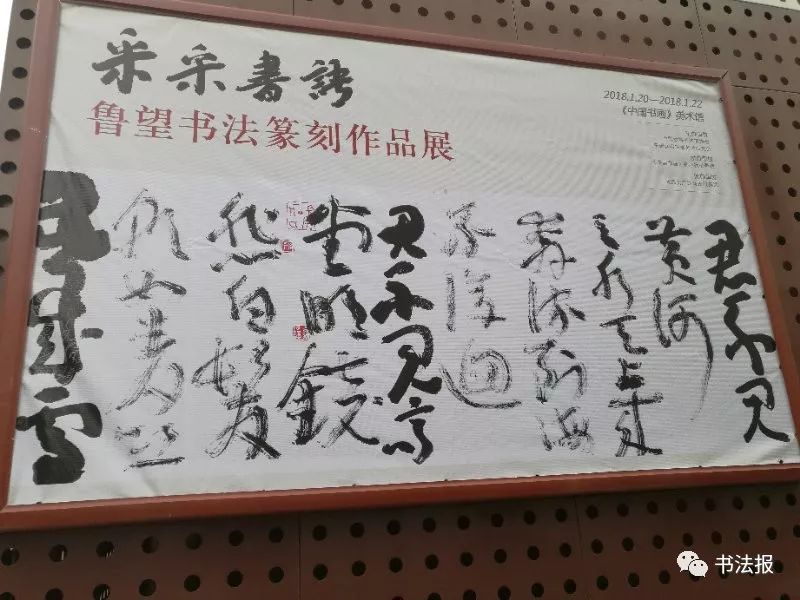 采采書
鲁望书法篆刻作品展
2018.1.20—2018.1.22
《中国书画》美术馆
君不见
黄河
之水天上来
奔流到海
不復迴
君不见高
堂明鏡
悲白髮
朝如青丝
暮成雪
书法报